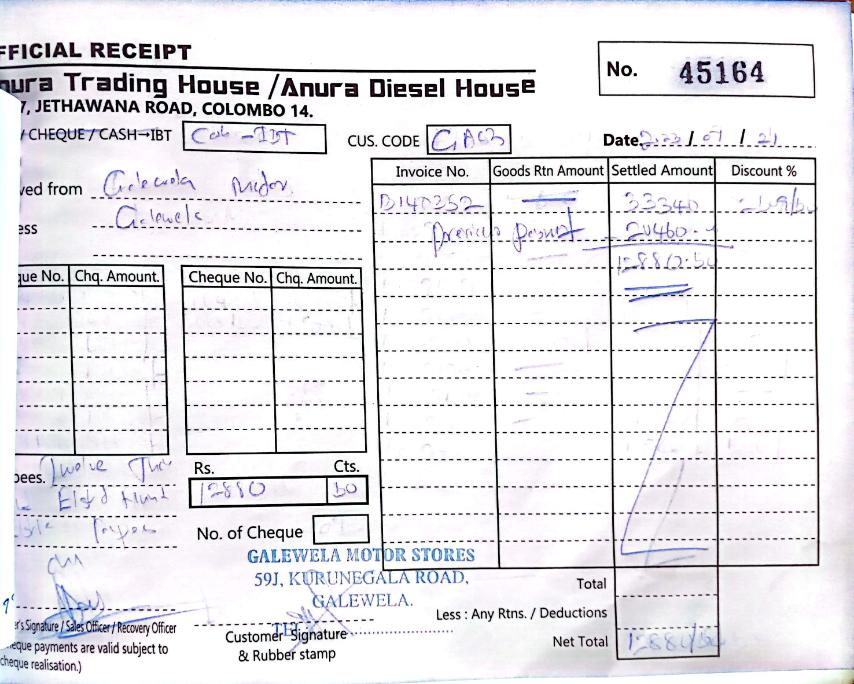 FFICIAL RECEIPT
No. 45164
nura Trading House /Anura Diesel House
7, JETHAWANA ROAD, COLOMBO 14.
/ CHEQUE / CASH→IBT
CUS. CODE
Date
ved from Galewela Motor
ess Galewela
Invoice No. Goods Rtn Amount Settled Amount Discount %
D140352 33340
Previous Payment 20460
12880.50
ue No. Chq. Amount. Cheque No. Chq. Amount.
pees. Twelve
Rs. Cts.
12880 50
No. of Cheque
GALEWELA MOTOR STORES
59J, KURUNEGALA ROAD,
GALEWELA.
Total
Less : Any Rtns. / Deductions
Net Total 12880/50
er's Signature / Sales Officer / Recovery Officer
Customer Signature
& Rubber stamp
heque payments are valid subject to
cheque realisation.)